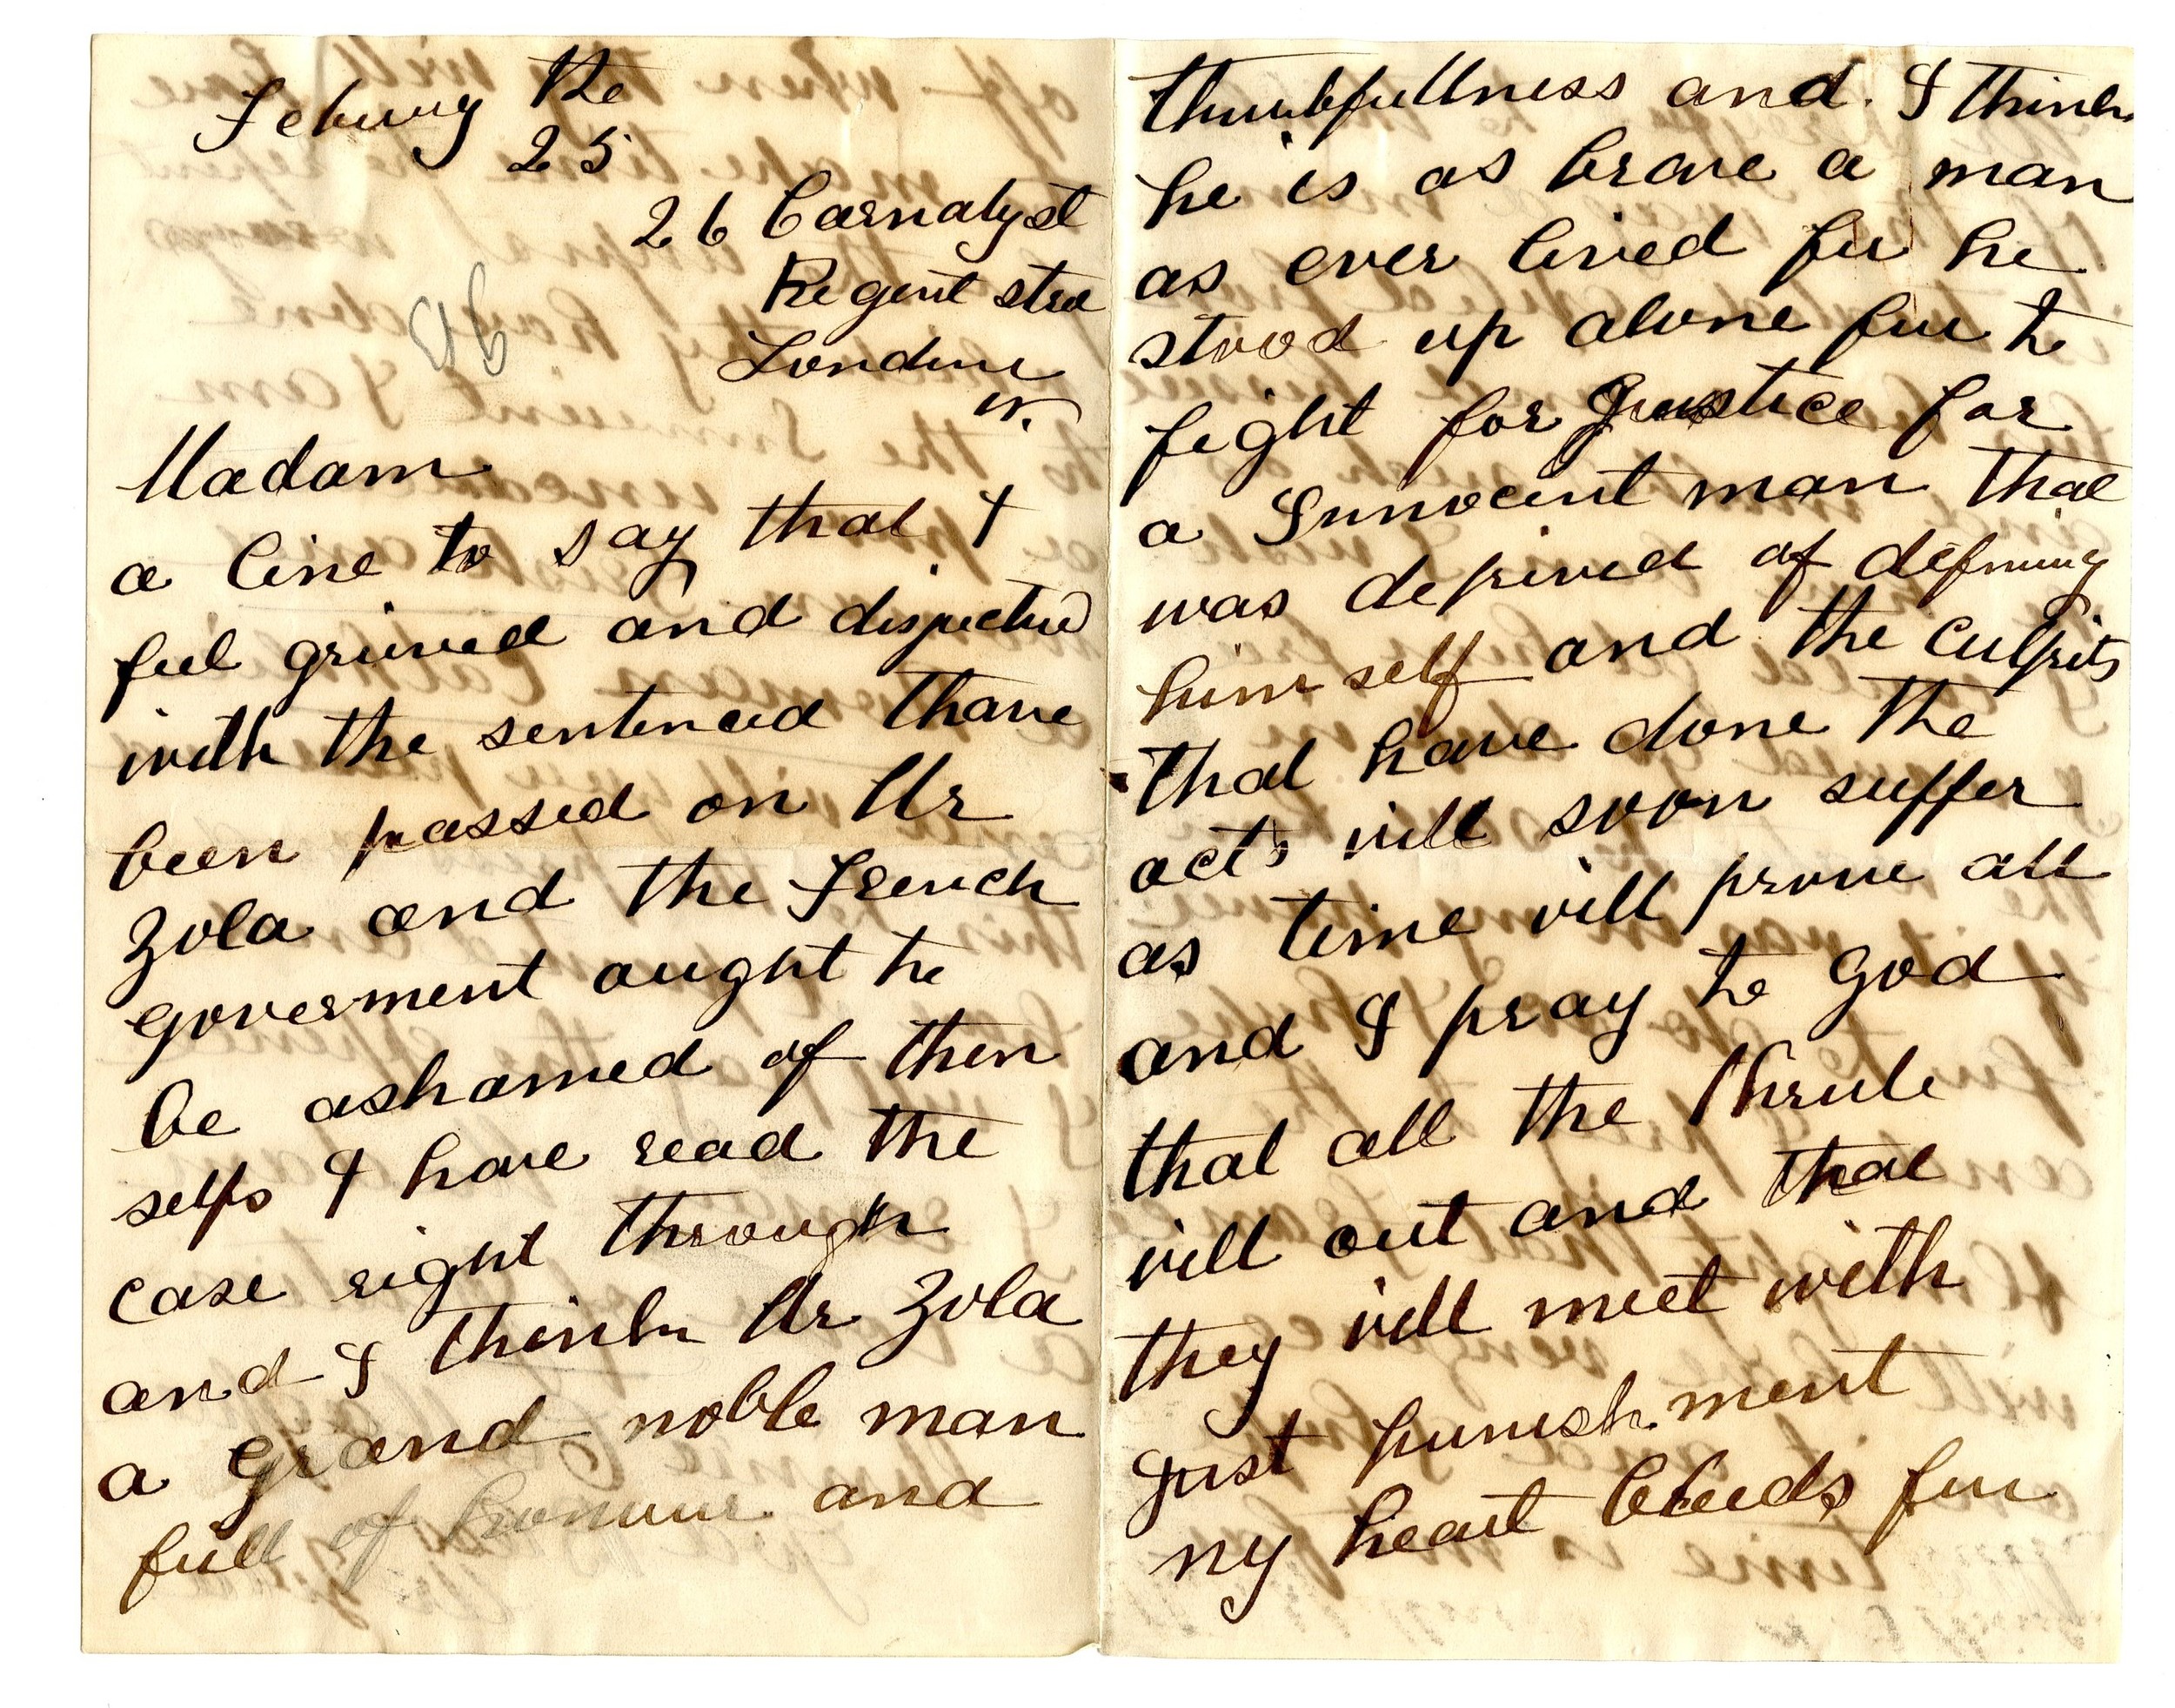 Febuary the
25
26 Carnaby st
Regent stree
London
W.
Madam
a line to say that I
feel grieved and disjected
with the sentenced thave
been passed on Mr
Zola and the French
goverment ought to
be ashamed of then
selfs I have read the
case right through
and I think Mr Zola
a grand noble man
full of honour and
thinkfullness and. I think
he is as brave a man
as ever lived for he
stood up alone for to
fight for Justice for
a Innocent man that
was deprived of defining
him self and the culprits
that have done the
acts will soon suffer
as time will prove all
and I pray to God
that all the
will out and that
they will meet with
just punishment
my heart bleeds for